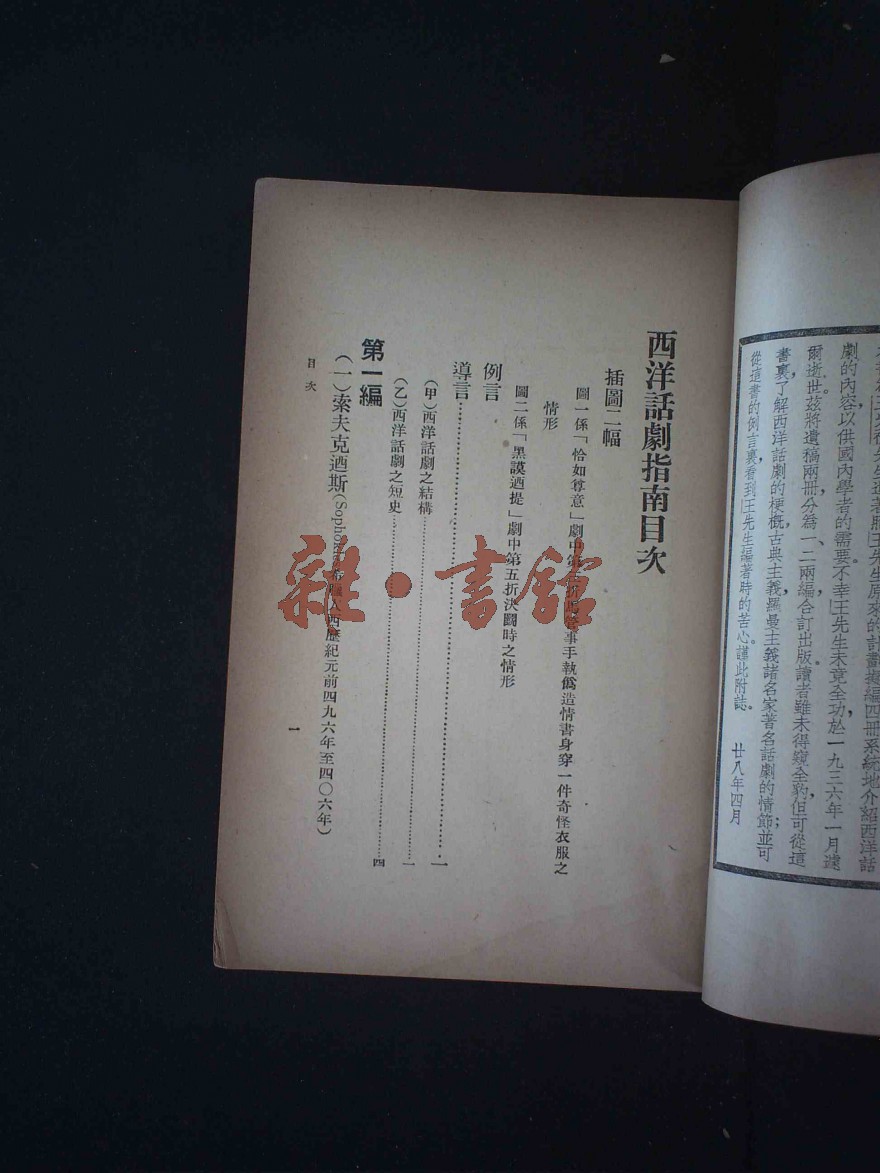 劇的內容以供國內學者的需要不幸王先生未竟全功於一九三六年一月遽
爾逝世茲將遺稿兩冊分為一、二兩編合訂出版讀者雖未得窺全豹但可從這
書裏了解西洋話劇的梗概古典主義羅曼主義諸名家著名話劇的情節；並可
從這書的例言裏看到王先生編著時的苦心。謹此附誌。
廿八年四月
西洋話劇指南目次
插圖二幅
圖一係「恰如尊意」劇中第 事手執僞造情書身穿一件奇怪衣服之
情形
圖二係「黑謨迺提」劇中第五折決鬭時之情形
例言
導言……一
(甲)西洋話劇之結構……一
(乙)西洋話劇之短史……四
第一編
(一)索夫克迺斯(Sophocles希臘人西歷紀元前四九六年至四〇六年)
目次
一
雜·書館